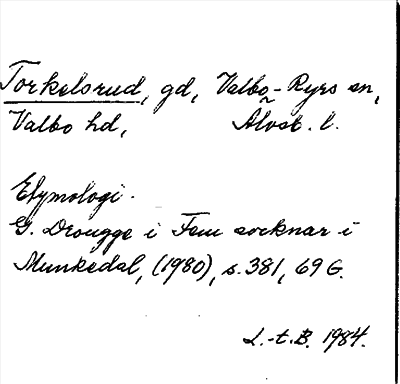 Torkelsrud, gd, Valbo-Ryrs sn,
Valbo hd, Älvsb. l.
Etymologi.
G. Drougge i Fem socknar i
Munkedal, (1980), s. 381, 69 G.
L.-t. B. 1984.